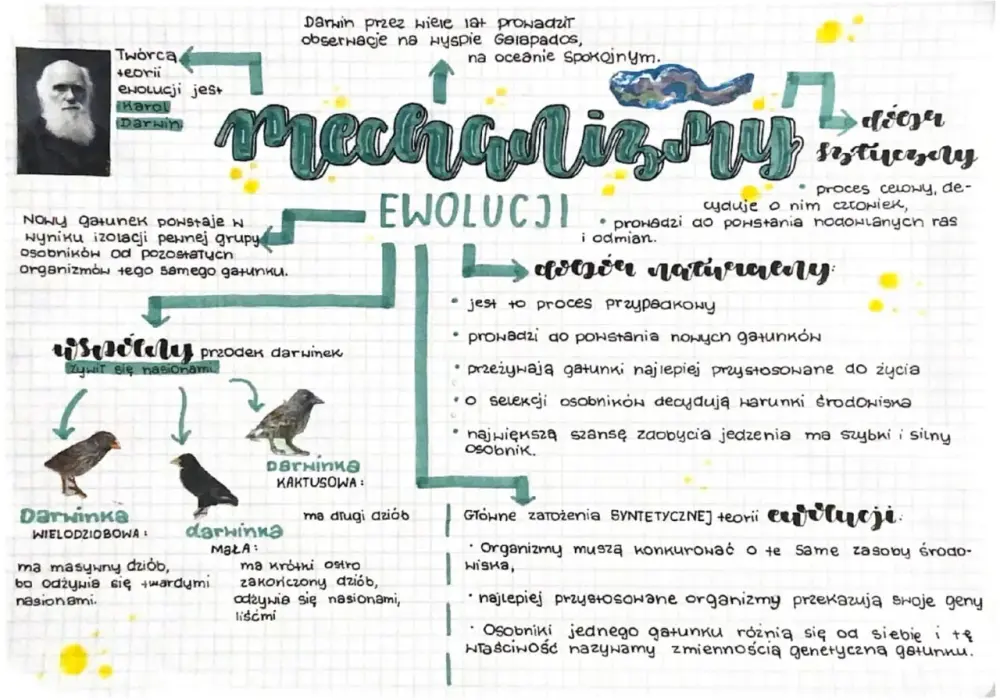 Darwin przez wiele lat prowadził
obserwacje na wyspie Galapados,
na oceanie spokojnym.
Twórcą
teorii
ewolucji jest
Karol
Darwin
mechanizmy
EWOLUCJI
dobór
sztuczny
• proces celowy, de-
cyduje o nim człowiek,
• prowadzi do powstania hodowlanych ras
i odmian.
Nowy gatunek powstaje w
wyniku izolacji pewnej grupy
osobników od pozostałych
organizmów tego samego gatunku.
dobór naturalny:
• jest to proces przypadkowy
• prowadzi do powstania nowych gatunków
• przeżywają gatunki najlepiej przystosowane do życia
• o selekcji osobników decydują warunki środowiska
• największą szansę zdobycia jedzenia ma szybki i silny
osobnik.
wspólny przodek darwinek
żywił się nasionami
Darwinka
KAKTUSOWA:
ma długi dziób
Darwinka
WIELODZIOBOWA:
ma masywny dziób,
bo odżywia się twardymi
nasionami.
darwinka
MAŁA:
ma krótki ostro
zakończony dziób,
odżywia się nasionami,
liśćmi
Główne założenia SYNTETYCZNEJ teorii ewolucji:
• Organizmy muszą konkurować o te same zasoby środo-
wiska,
• najlepiej przystosowane organizmy przekazują swoje geny
• Osobniki jednego gatunku różnią się od siebie i tę
właściwość nazywamy zmiennością genetyczną gatunku.